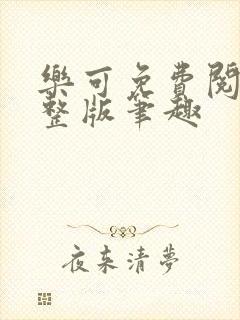 樂可免費閱
整版筆趣
夜來清夢